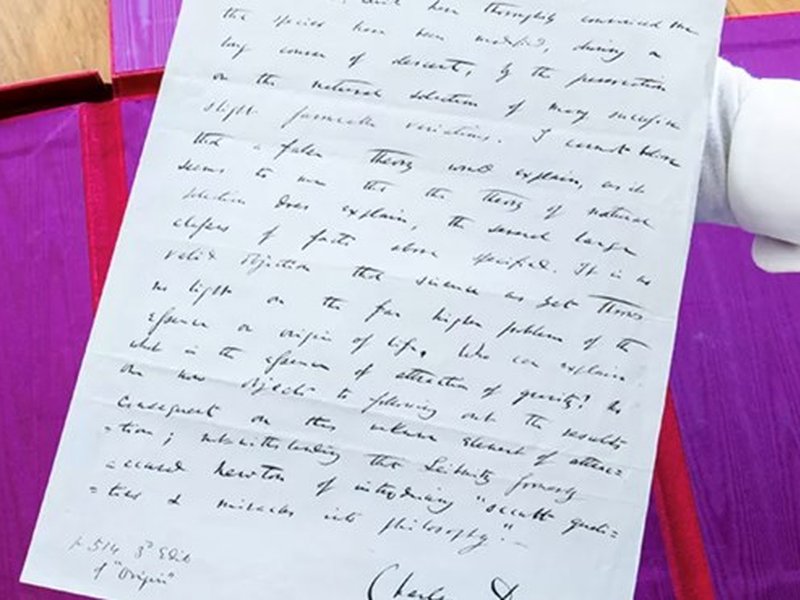 , which have thoroughly convinced me
the species have been modified, during a
long course of descent, by the preservation
or the natural selection of many successive
slight favourable variations. I cannot believe
that a false theory would explain, as it
seems to me that the theory of natural
selection does explain, the several large
classes of facts above specified. It is no
valid objection that science as yet throws
no light on the far higher problem of the
essence or origin of life. Who can explain
what is the essence of attraction of gravity? No
one now objects to following out the results
consequent on this unknown element of attrac=
=tion; notwithstanding that Leibnitz formerly
accused Newton of introducing "occult quali=
=ties & miracles into philosophy."—
Charles D
p 514 3d Edit
of "Origin"